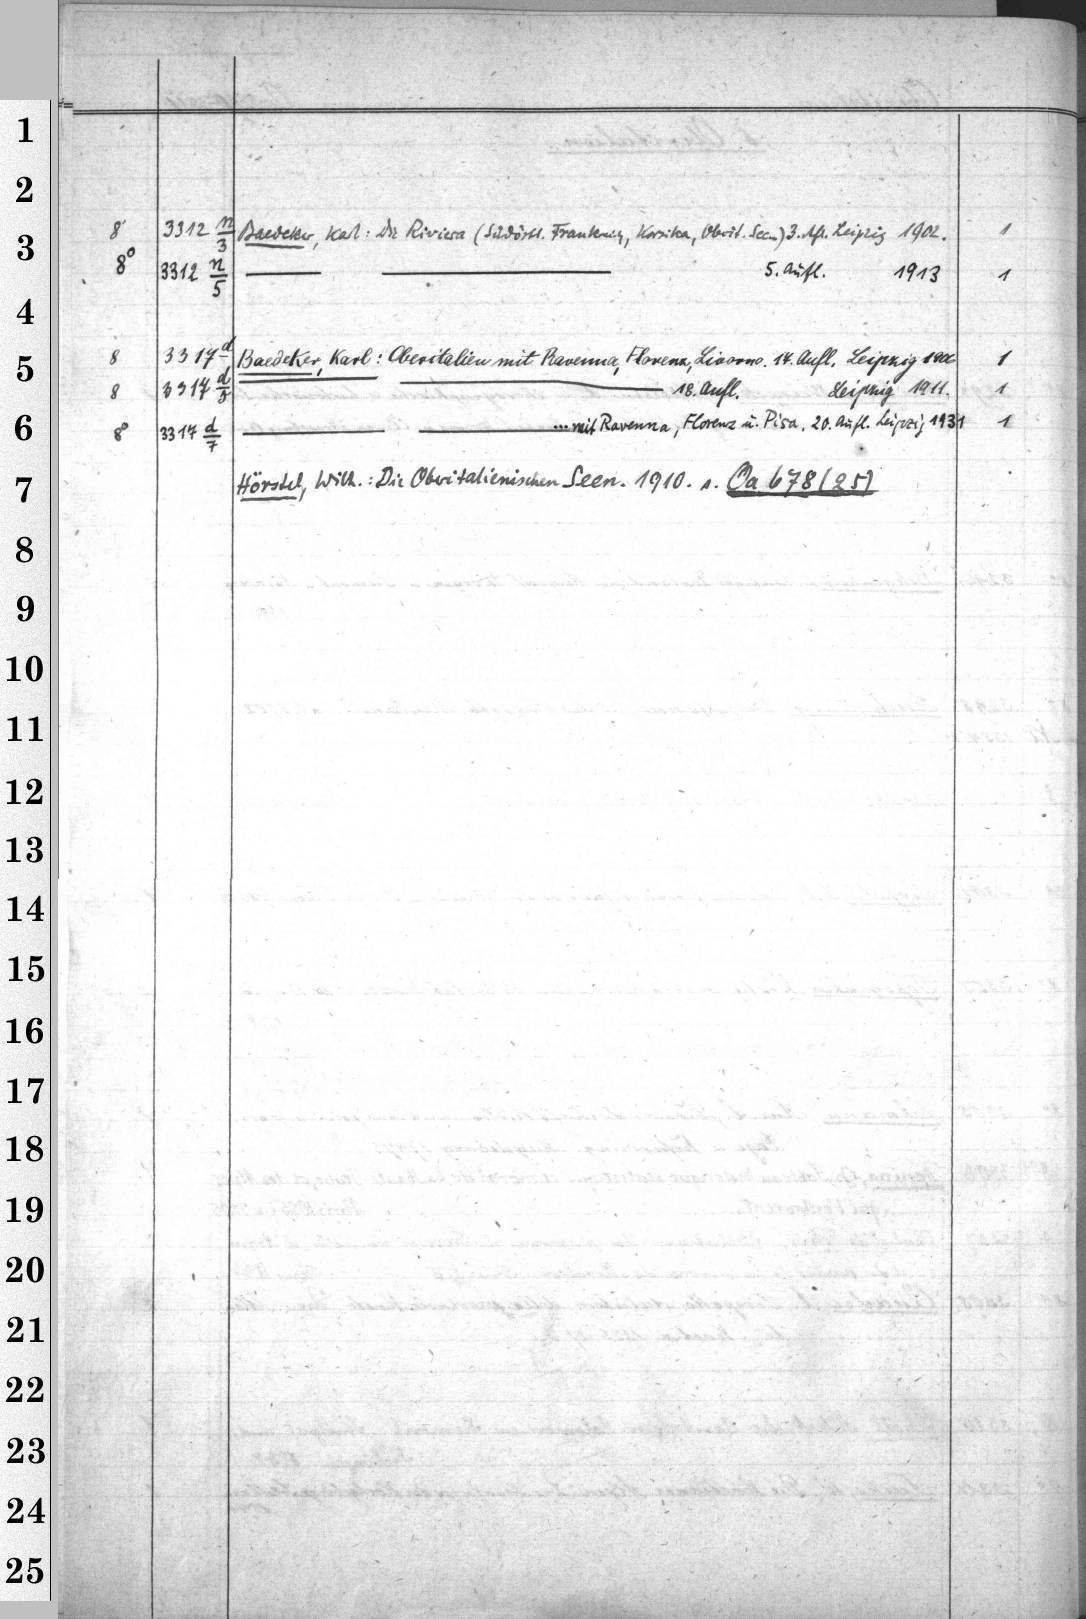 1
2
8° 3312 n/3 Baedeker, Karl: Die Riviera (Südöstl. Frankreich, Korsika, Oberit. Seen) 3. Afl. Leipzig 1902. 1
3
8° 3312 n/5 5. Aufl. 1913 1
4
8 3317 d Baedeker, Karl: Oberitalien mit Ravenna, Florenz, Livorno. 14. Aufl. Leipzig 1
5
8 3317 d/5 18. Aufl. Leipzig 1911. 1
6
8° 3317 d/7 ... mit Ravenna, Florenz u. Pisa. 20. Aufl. Leipzig 1931 1
7
Hörstel, Wilh.: Die Oberitalienischen Seen. 1910. s. Oa 678 (25)
8
9
10
11
12
13
14
15
16
17
18
19
20
21
22
23
24
25